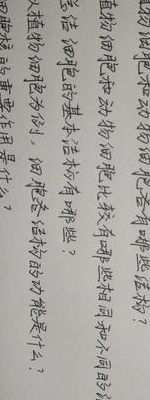 植物细胞和动物细胞各有哪些结构?
植物细胞和动物细胞比较有哪些相同和不同的
总结细胞的基本结构有哪些?
以植物细胞为例,细胞各结构的功能是什么?
细胞核的重要作用是什么?